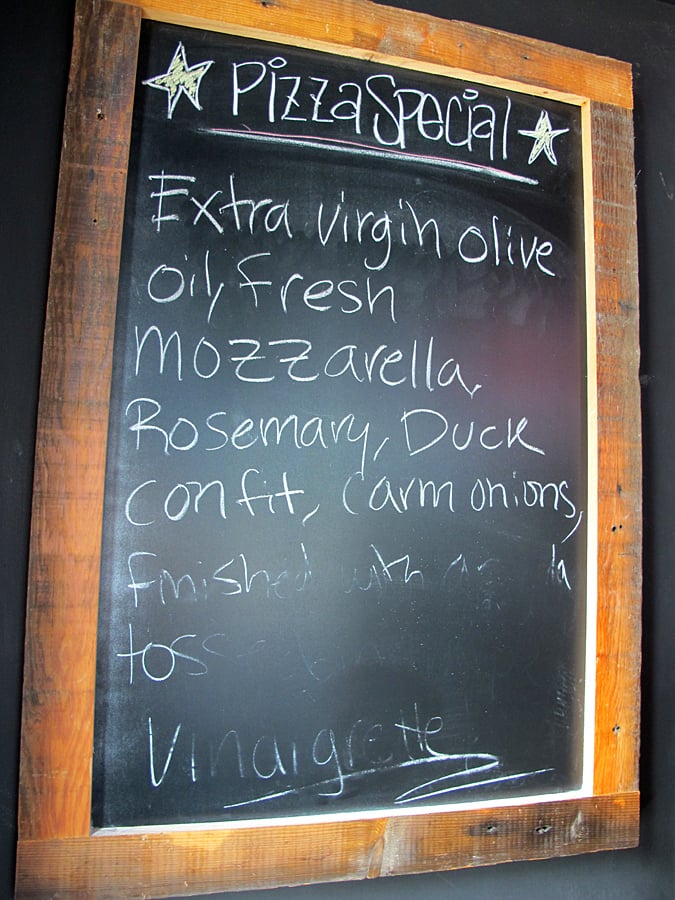 Pizza Special
Extra virgin olive
oil, fresh
mozzarella,
Rosemary, Duck
confit, Carm onions,
finished with
Vinaigrette